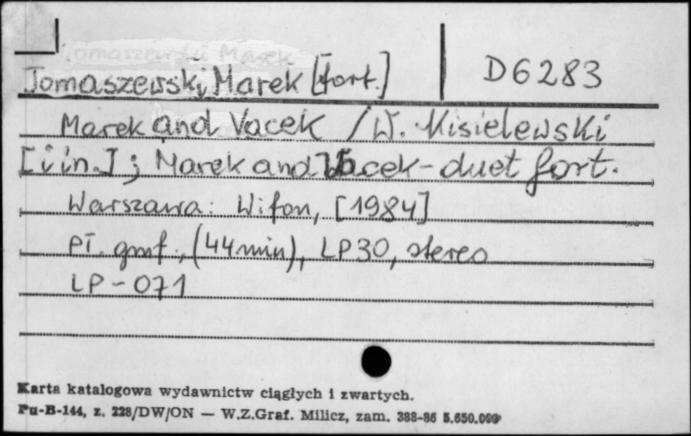 Tomaszewski Marek
Tomaszewski, Marek [fort.] D6283
Marek and Vacek / W. Kisielewski
[i in.] ; Marek and Vacek - duet fort.
Warszawa: Wifon, [1984]
Pł. gmf., (44 min), LP30, stereo
LP - 071
Karta katalogowa wydawnictw ciągłych i zwartych.
Pu-B-144, z. 228/DW/ON — W.Z.Graf. Milicz, zam. 388-86 5.650.000